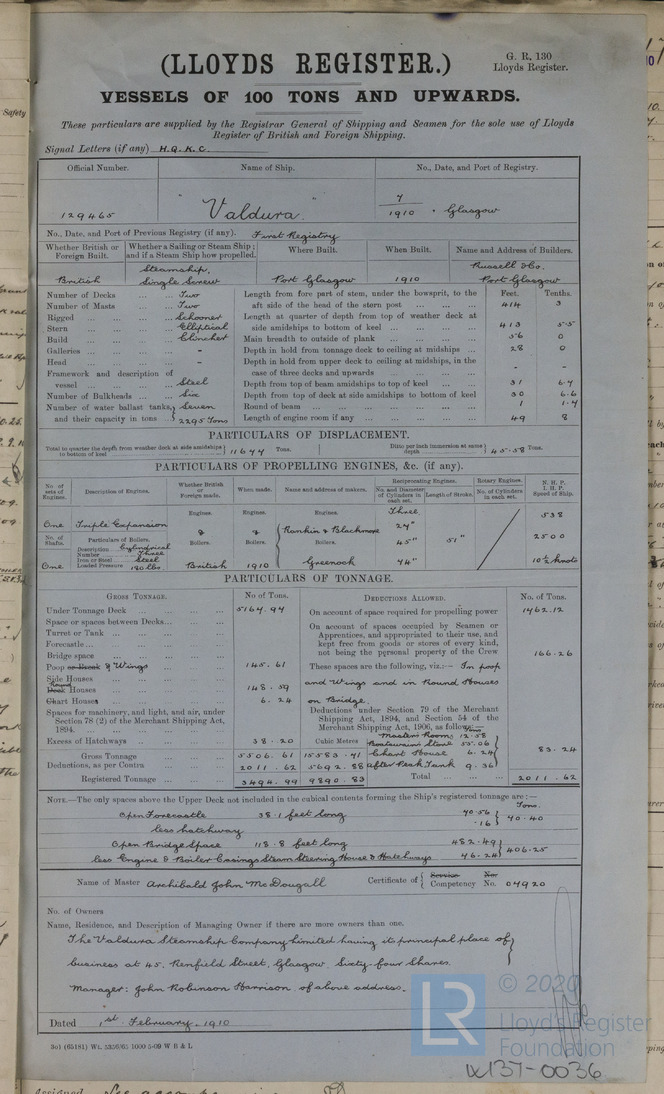 (LLOYDS REGISTER.)
G. R. 130
Lloyds Register.
VESSELS OF 100 TONS AND UPWARDS.
These particulars are supplied by the Registrar General of Shipping and Seamen for the sole use of Lloyds
Register of British and Foreign Shipping.
Signal Letters (if any) H.Q.K.C.
Official Number. Name of Ship. No., Date, and Port of Registry.
129465 "Valdura" 7/1910 . Glasgow
No., Date, and Port of Previous Registry (if any). First Registry
Whether British or Foreign Built. Whether a Sailing or Steam Ship; and if a Steam Ship how propelled. Where Built. When Built. Name and Address of Builders.
British Steamship, Single Screw Port Glasgow 1910 Russell & Co. Port Glasgow
Number of Decks ... ... Two
Number of Masts ... ... Two
Rigged ... ... ... Schooner
Stern ... ... ... Elliptical
Build ... ... ... Clincher
Galleries ... ... ... -
Head ... ... ... -
Framework and description of
vessel ... ... ... Steel
Number of Bulkheads ... Six
Number of water ballast tanks, } Seven
and their capacity in tons } 2295 Tons
Feet. Tenths.
Length from fore part of stem, under the bowsprit, to the
aft side of the head of the stern post ... ... 414 3
Length at quarter of depth from top of weather deck at
side amidships to bottom of keel ... ... ... 413 5.5
Main breadth to outside of plank ... ... ... 56 0
Depth in hold from tonnage deck to ceiling at midships ... 28 0
Depth in hold from upper deck to ceiling at midships, in the
case of three decks and upwards ... ... - -
Depth from top of beam amidships to top of keel ... ... 31 6.4
Depth from top of deck at side amidships to bottom of keel 30 6.6
Round of beam ... ... ... ... ... 1 1.4
Length of engine room if any ... ... ... ... 49 8
PARTICULARS OF DISPLACEMENT.
Total to quarter the depth from weather deck at side amidships to bottom of keel } 11644 Tons. Ditto per inch immersion at same depth } 45.58 Tons.
PARTICULARS OF PROPELLING ENGINES, &c. (if any).
No. of sets of Engines. Description of Engines. Whether British or Foreign made. When made. Name and address of makers. Reciprocating Engines. No. and Diameter of Cylinders in each set. Length of Stroke. Rotary Engines. No. of Cylinders in each set. N. H. P. I. H. P. Speed of Ship.
Engines. Engines. Engines. Three
One Triple Expansion 24" 538
No. of Shafts. Particulars of Boilers. Boilers. Boilers. Rankin & Blackmore Boilers. 45" 51" 2500
Description Cylindrical
Number Three
Iron or Steel Steel
One Loaded Pressure 180 lbs. British 1910 Greenock 74" 10½ knots
PARTICULARS OF TONNAGE.
GROSS TONNAGE. No of Tons.
Under Tonnage Deck ... ... ... 5164.94
Space or spaces between Decks... ... ...
Turret or Tank ... ... ... ...
Forecastle... ... ... ... ...
Bridge space ... ... ... ...
Poop or Break & Wings ... ... 145.61
Side Houses ... ... ... ...
Deck Round Houses ... ... ... 148.59
Chart Houses ... ... ... 6.24
Spaces for machinery, and light, and air, under
Section 78 (2) of the Merchant Shipping Act,
1894. ... ... ... ... ...
Excess of Hatchways ... ... ... 38.20 Cubic Metres
Gross Tonnage ... ... 5506.61 15583.71
Deductions, as per Contra ... ... 2011.62 5692.88
Registered Tonnage ... ... 3494.99 9890.83
DEDUCTIONS ALLOWED. No. of Tons.
On account of space required for propelling power 1462.12
On account of spaces occupied by Seamen or
Apprentices, and appropriated to their use, and
kept free from goods or stores of every kind,
not being the personal property of the Crew 166.26
These spaces are the following, viz.:- In poop
and Wings and in Round Houses
on Bridge.
Deductions under Section 79 of the Merchant
Shipping Act, 1894, and Section 54 of the
Merchant Shipping Act, 1906, as follows:- Tons
Master's Rooms 12.58
Boatswain's Store 55.06
Chart House 6.24 } 83.24
After Peak Tank 9.36
Total ... ... 2011.62
NOTE.—The only spaces above the Upper Deck not included in the cubical contents forming the Ship's registered tonnage are :—
Tons.
Open Forecastle 38.1 feet long 40.56 } 40.40
less hatchway .16
Open Bridge Space 118.8 feet long 452.49 } 406.25
less Engine & Boiler Casings Steam Steering House & Hatchways 46.24
Name of Master Archibald John McDougall Certificate of { Service Competency No. No. 04920
No. of Owners
Name, Residence, and Description of Managing Owner if there are more owners than one.
The Valdura Steamship Company Limited having its principal place of
business at 45, Renfield Street, Glasgow. Sixty-four Shares.
Manager: John Robinson Harrison of above address.
Dated 1st February, 1910
301 (65181) Wt. 5356/65 1000 5-09 W B & L
© 2020
Lloyd's Register
Foundation
LR
W137-0036